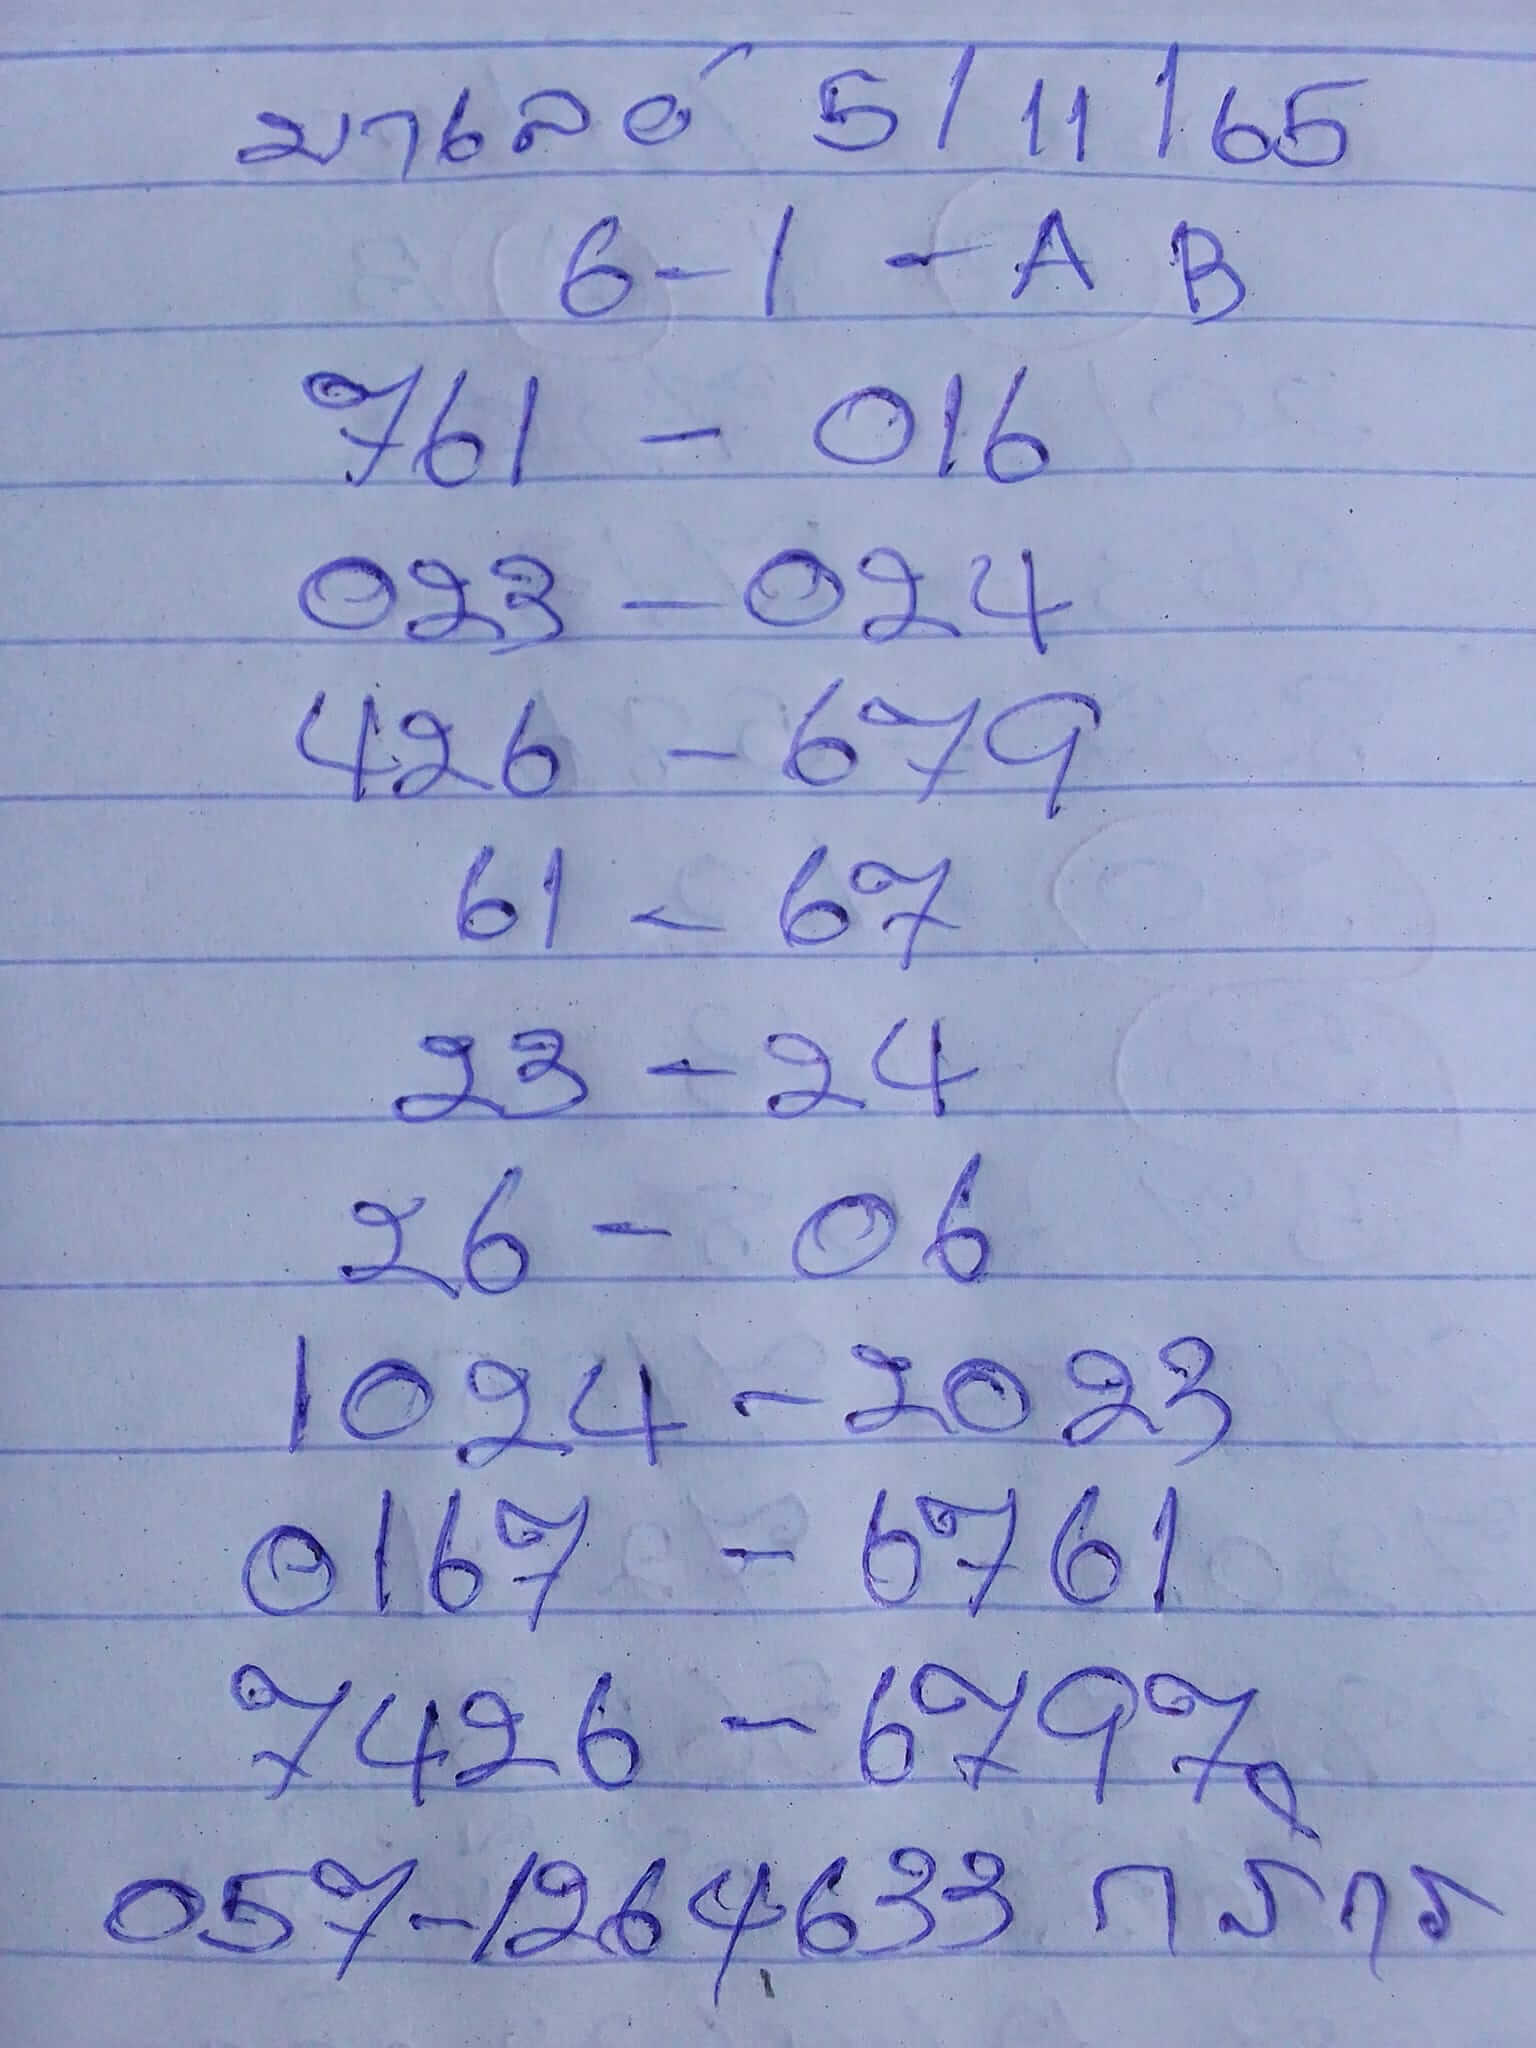 มาเลย์ 5/11/65
6-1 - A B
761 - 016
023 - 024
426 - 679
61 - 67
23 - 24
26 - 06
1024 - 2023
0167 - 6761
7426 - 6797
057-1264633